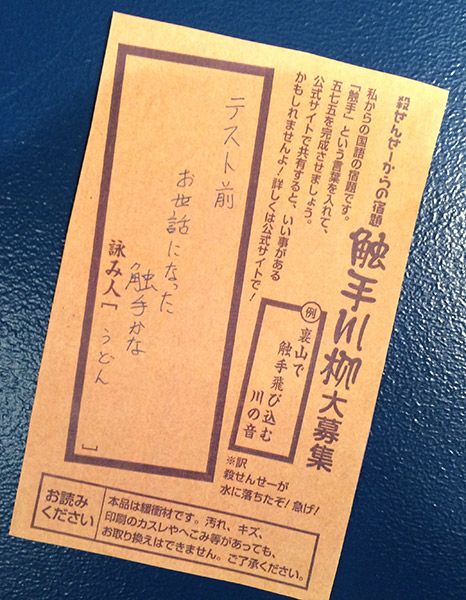 殺せんせーからの宿題
触手川柳大募集
私からの国語の宿題です。
『触手』という言葉を入れて、
五七五を完成させましょう。
公式サイトで共有すると、いい事がある
かもしれませんよ！詳しくは公式サイトで！
例
裏山で
触手飛び込む
川の音
※訳
殺せんせーが
水に落ちたぞ！急げ！
テスト前
お世話になった
触手かな
詠み人〔うどん
〕
お読み
ください
本品は緩衝材です。汚れ、キズ、
印刷のカスレやへこみ等があっても、
お取り換えはできません。ご了承ください。